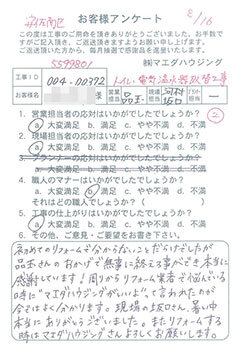 安佐南区
お客様アンケート
8/16
この度は工事のご用命を頂きありがとうございました。お手数で
すがご記入頂き、ご返送頂きますようお願い申し上げます。
ご返送頂いた方から、毎月抽選で感謝品を呈呈いたします。
5599801
㈱マエダハウジング
工事ID
004-00372
トイレ・電気温水器取替工事
営業担当
品玉
現場担当
河村
坂口
プランナー
1. 営業担当者の応対はいかがでしたでしょうか？
②
a 大変満足 b. 満足 c. やや不満 d. 不満
2. 現場担当者の応対はいかがでしたでしょうか？
a 大変満足 b. 満足 c. やや不満 d. 不満
3. プランナーの応対はいかがでしたでしょうか？
a. 大変満足 b. 満足 c. やや不満 d. 不満
4. 職人のマナーはいかがでしたでしょうか？
a. 大変満足 b 満足 c. やや不満 d. 不満
それはどの職人でしょうか？（ ）
5. 工事の仕上がりはいかがでしたでしょうか？
a 大変満足 b. 満足 c. やや不満 d. 不満
6. その他、ご意見・ご要望をお聞かせください。
初めてのリフォームで分からないことだらけでしたが
品玉さんのおかげで無事に終える事ができ本当に
感謝しています！周りからリフォーム業者で悩んでいる
時に"マエダハウジングがいいよ"って言われたのが
今ではよく分かります。現場の坂口さん、暑い中
本当にありがとうございました。またリフォームする
時はマエダハウジングさんよろしくお願いします。